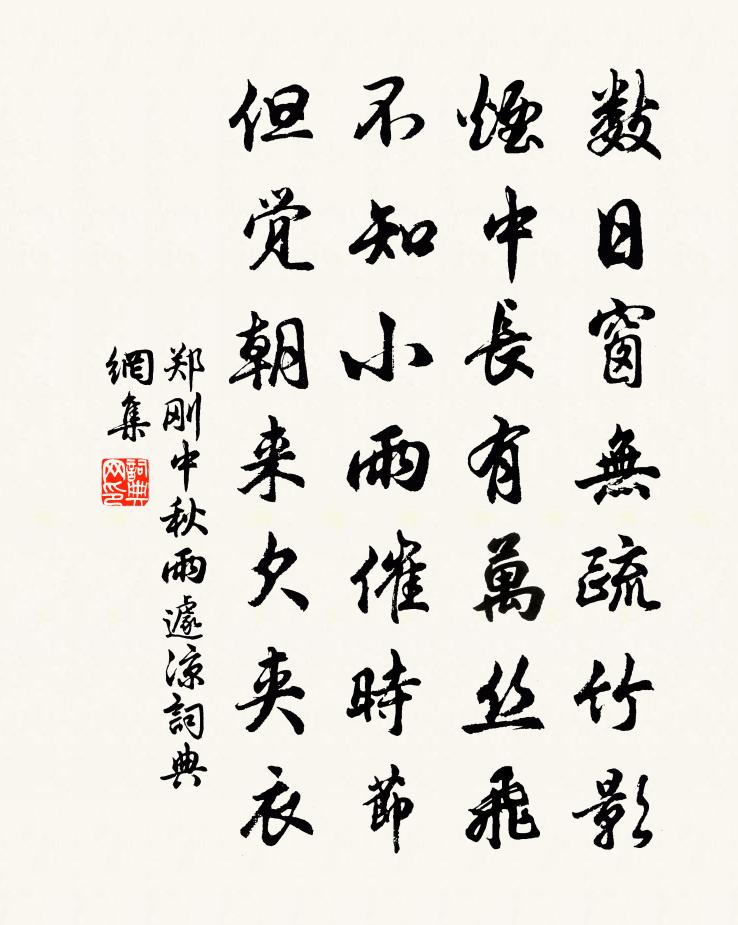 数日窗無疏竹影
煙中長有萬丝飛
不知小雨催時節
但觉朝来欠夹衣
郑刚中秋雨遽凉詞典
網集
詞典
网印